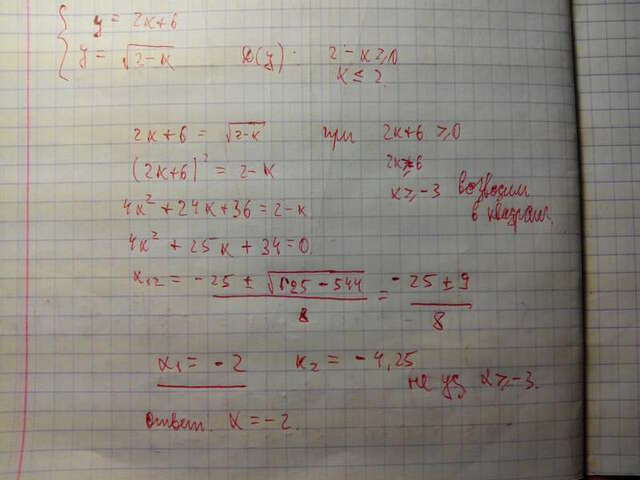 y = 2x+6
y = √(2-x) D(y): 2-x ≥ 0
x ≤ 2
2x+6 = √(2-x) при 2x+6 ≥ 0
(2x+6)² = 2-x 2x ≥ 6
x ≥ -3 возводим
в квадрат.
4x² + 24x + 36 = 2-x
4x² + 25x + 34 = 0
x₁,₂ = (-25 ± √(625 - 544))/8 = (-25 ± 9)/8
x₁ = -2 x₂ = -4,25
не уд x ≥ -3.
ответ. x = -2.